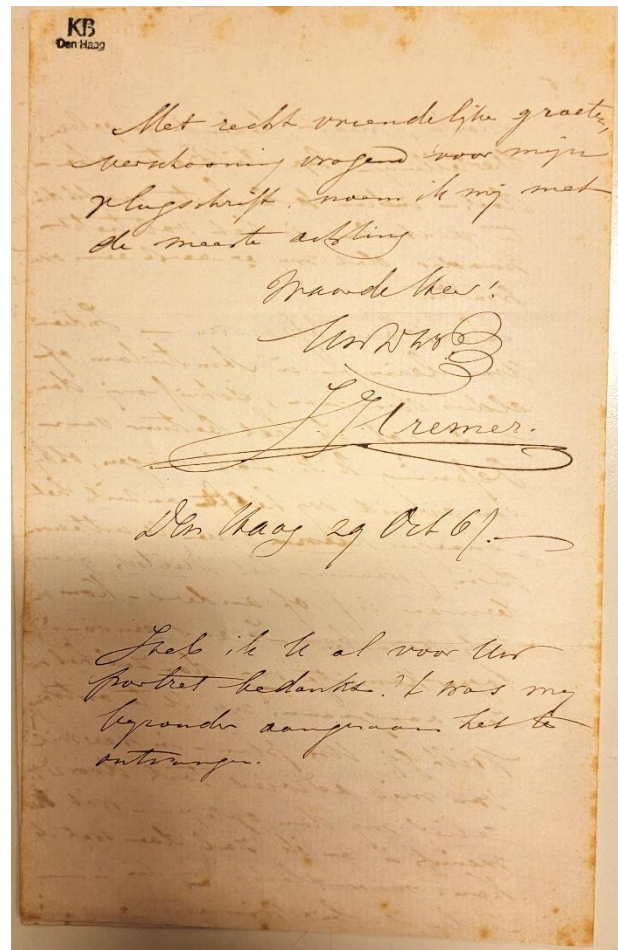 KB
Den Haag
Met recht vriendelijke groeten,
verschooning vragend voor mijn
vlugschrift, noem ik mij met
de meeste achting
Waarde Heer!
Uw Dw
J.J. Cremer.
Den Haag 29 Oct 67.
Heb ik U al voor Uw
portret bedankt? 't was mij
byzonder aangenaam het te
ontvangen.